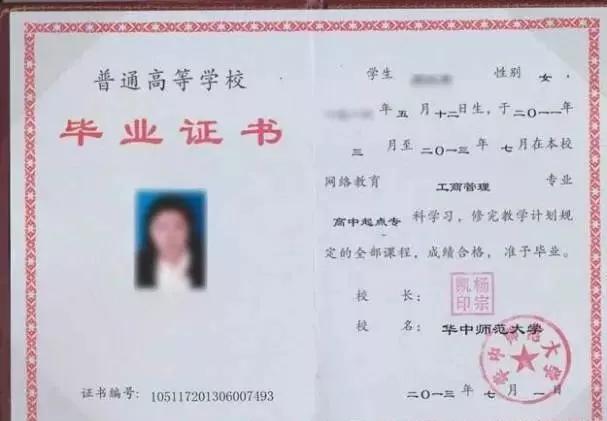 普通高等学校
毕业证书
证书编号: 105117201306007493
学生 性别 女,
年 五 月 十二 日生, 于 二〇一一 年
三 月至 二〇一三 年 七 月在本校
网络教育 工商管理 专业
高中起点专 科学习, 修完教学计划规
定的全部课程, 成绩合格, 准予毕业。
校 长:
杨宗凯印
校 名: 华中师范大学
华中师范大学
二〇一三 年 七 月 一 日